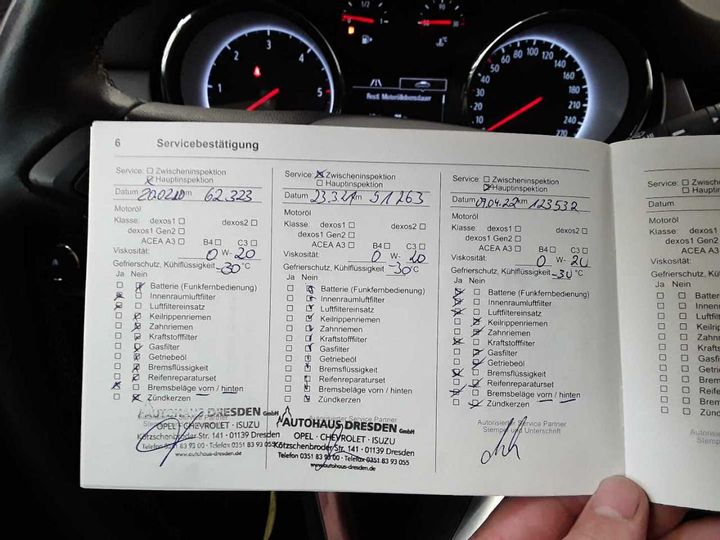 1/2
90
1
2
3
4
5
10
30
50
70
80
100
120
140
160
180
200
220
Restl. Motoröllebensdauer
6 Servicebestätigung
Service: Zwischeninspektion
Hauptinspektion
Datum km 62.323
Motoröl
Klasse: dexos1 dexos2
dexos1 Gen2
ACEA A3 B4 C3
Viskosität: 0 W-20
Gefrierschutz, Kühlflüssigkeit -30 °C
Ja Nein
Batterie (Funkfernbedienung)
Innenraumluftfilter
Luftfiltereinsatz
Keilrippenriemen
Zahnriemen
Kraftstofffilter
Gasfilter
Getriebeöl
Bremsflüssigkeit
Reifenreparaturset
Bremsbeläge vorn / hinten
Zündkerzen
AUTOHAUS DRESDEN GmbH
OPEL · CHEVROLET · ISUZU
Kötzschenbroder Str. 141 · 01139 Dresden
Telefon 0351 83 93 00 · Telefax 0351 83 93 055
www.autohaus-dresden.de
Service: Zwischeninspektion
Hauptinspektion
Datum 23.3.21 km 91263
Motoröl
Klasse: dexos1 dexos2
dexos1 Gen2
ACEA A3 B4 C3
Viskosität: 0 W-20
Gefrierschutz, Kühlflüssigkeit -30 °C
Ja Nein
Batterie (Funkfernbedienung)
Innenraumluftfilter
Luftfiltereinsatz
Keilrippenriemen
Zahnriemen
Kraftstofffilter
Gasfilter
Getriebeöl
Bremsflüssigkeit
Reifenreparaturset
Bremsbeläge vorn / hinten
Zündkerzen
AUTOHAUS DRESDEN GmbH
OPEL · CHEVROLET · ISUZU
Kötzschenbroder Str. 141 · 01139 Dresden
Telefon 0351 83 93 00 · Telefax 0351 83 93 055
www.autohaus-dresden.de
Service: Zwischeninspektion
Hauptinspektion
Datum 07.04.22 km 123532
Motoröl
Klasse: dexos1 dexos2
dexos1 Gen2
ACEA A3 B4 C3
Viskosität: 0 W-20
Gefrierschutz, Kühlflüssigkeit -30 °C
Ja Nein
Batterie (Funkfernbedienung)
Innenraumluftfilter
Luftfiltereinsatz
Keilrippenriemen
Zahnriemen
Kraftstofffilter
Gasfilter
Getriebeöl
Bremsflüssigkeit
Reifenreparaturset
Bremsbeläge vorn / hinten
Zündkerzen
Autorisierter Service Partner
Stempel und Unterschrift
Service: Zwischeninspektion
Hauptinspektion
Datum km
Motoröl
Klasse: dexos1
dexos1 Gen2
ACEA A3
Viskosität:
Gefrierschutz, Kühlflüssigkeit
Ja Nein
Batterie
Innenra
Luftfilte
Keilrip
Zahnr
Krafts
Gasfi
Getr
Brem
Reife
Brem
Zünd
Autorisie
Stemp